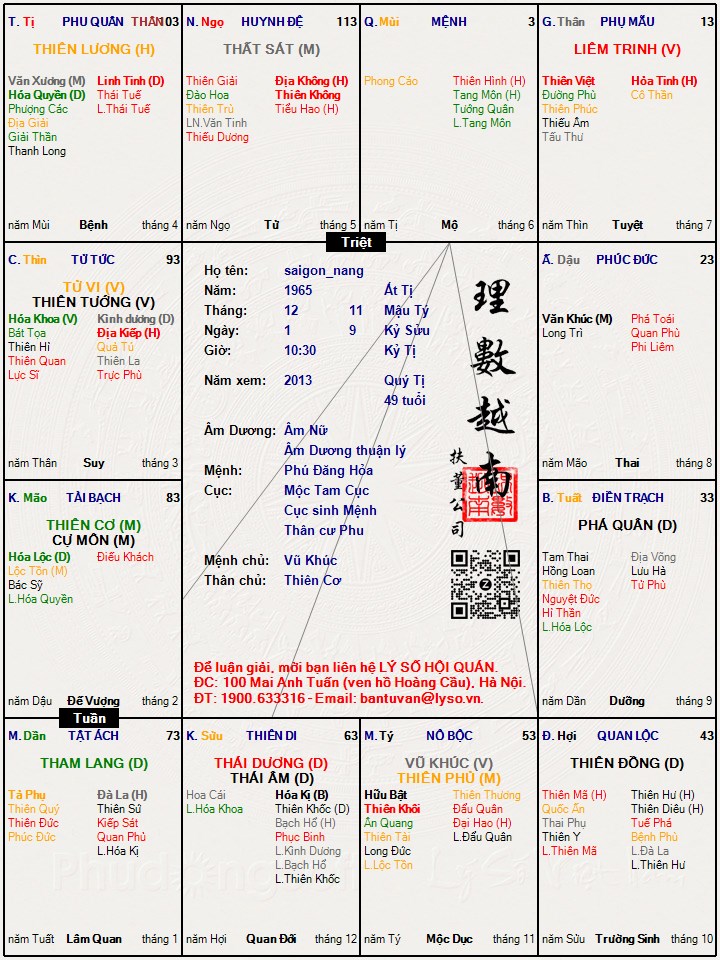 T. Tị PHU QUÂN THÂN 103
THIÊN LƯƠNG (H)
Văn Xương (M) Linh Tinh (D)
Hóa Quyền (D) Thái Tuế
Phượng Các L.Thái Tuế
Địa Giải
Giải Thần
Thanh Long
năm Mùi Bệnh tháng 4
N. Ngọ HUYNH ĐỆ 113
THẤT SÁT (M)
Thiên Giải Địa Không (H)
Đào Hoa Thiên Không
Thiên Trù Tiểu Hao (H)
LN.Văn Tinh
Thiếu Dương
năm Ngọ Tử tháng 5
Q. Mùi MỆNH 3
Phong Cáo Thiên Hình (H)
Tang Môn (H)
Tướng Quân
L.Tang Môn
năm Tị Mộ tháng 6
G. Thân PHỤ MẪU 13
LIÊM TRINH (V)
Thiên Việt Hỏa Tinh (H)
Đường Phù Cô Thần
Thiên Phúc
Thiếu Âm
Tấu Thư
năm Thìn Tuyệt tháng 7
Triệt
C. Thìn TỬ TỨC 93
TỬ VI (V)
THIÊN TƯỚNG (V)
Hóa Khoa (V) Kình dương (D)
Bát Tọa Địa Kiếp (H)
Thiên Hỉ Quả Tú
Thiên Quan Thiên La
Lực Sĩ Trực Phù
năm Thân Suy tháng 3
Họ tên: saigon_nang
Năm: 1965 Ất Tị
Tháng: 12 11 Mậu Tý
Ngày: 1 9 Kỷ Sửu
Giờ: 10:30 Kỷ Tị
Năm xem: 2013 Quý Tị
49 tuổi
Âm Dương: Âm Nữ
Âm Dương thuận lý
Mệnh: Phú Đăng Hỏa
Cục: Mộc Tam Cục
Cục sinh Mệnh
Thân cư Phu
Mệnh chủ: Vũ Khúc
Thân chủ: Thiên Cơ
理數越南
扶董公司
Để luận giải, mời bạn liên hệ LÝ SỐ HỘI QUÁN.
ĐC: 100 Mai Anh Tuấn (ven hồ Hoàng Cầu), Hà Nội.
ĐT: 1900.633316 - Email: bantuvan@lyso.vn.
Ấ. Dậu PHÚC ĐỨC 23
Văn Khúc (M) Phá Toái
Long Trì Quan Phù
Phi Liêm
năm Mão Thai tháng 8
K. Mão TÀI BẠCH 83
THIÊN CƠ (M)
CỰ MÔN (M)
Hóa Lộc (D) Điếu Khách
Lộc Tồn (M)
Bác Sỹ
L.Hóa Quyền
năm Dậu Đế Vượng tháng 2
B. Tuất ĐIỀN TRẠCH 33
PHÁ QUÂN (D)
Tam Thai Địa Võng
Hồng Loan Lưu Hà
Thiên Thọ Tử Phù
Nguyệt Đức
Hỉ Thần
L.Hóa Lộc
năm Dần Dưỡng tháng 9
Tuần
M. Dần TẬT ÁCH 73
THAM LANG (D)
Tả Phụ Đà La (H)
Thiên Quý Thiên Sứ
Thiên Đức Kiếp Sát
Phúc Đức Quan Phủ
L.Hóa Kị
năm Tuất Lâm Quan tháng 1
K. Sửu THIÊN DI 63
THÁI DƯƠNG (D)
THÁI ÂM (D)
Hoa Cái Hóa Kị (B)
L.Hóa Khoa Thiên Khốc (D)
Bạch Hổ (H)
Phục Binh
L.Kình Dương
L.Bạch Hổ
L.Thiên Khốc
năm Hợi Quan Đới tháng 12
M. Tý NÔ BỘC 53
VŨ KHÚC (V)
THIÊN PHỦ (M)
Hữu Bật Thiên Thương
Thiên Khôi Đẩu Quân
Ân Quang Đại Hao (H)
Thiên Tài L.Đẩu Quân
Long Đức
L.Lộc Tồn
năm Tý Mộc Dục tháng 11
Đ. Hợi QUAN LỘC 43
THIÊN ĐỒNG (D)
Thiên Mã (H) Thiên Hư (H)
Quốc Ấn Thiên Diêu (H)
Thai Phụ Tuế Phá
Thiên Y Bệnh Phù
L.Thiên Mã L.Đà La
L.Thiên Hư
năm Sửu Trường Sinh tháng 10